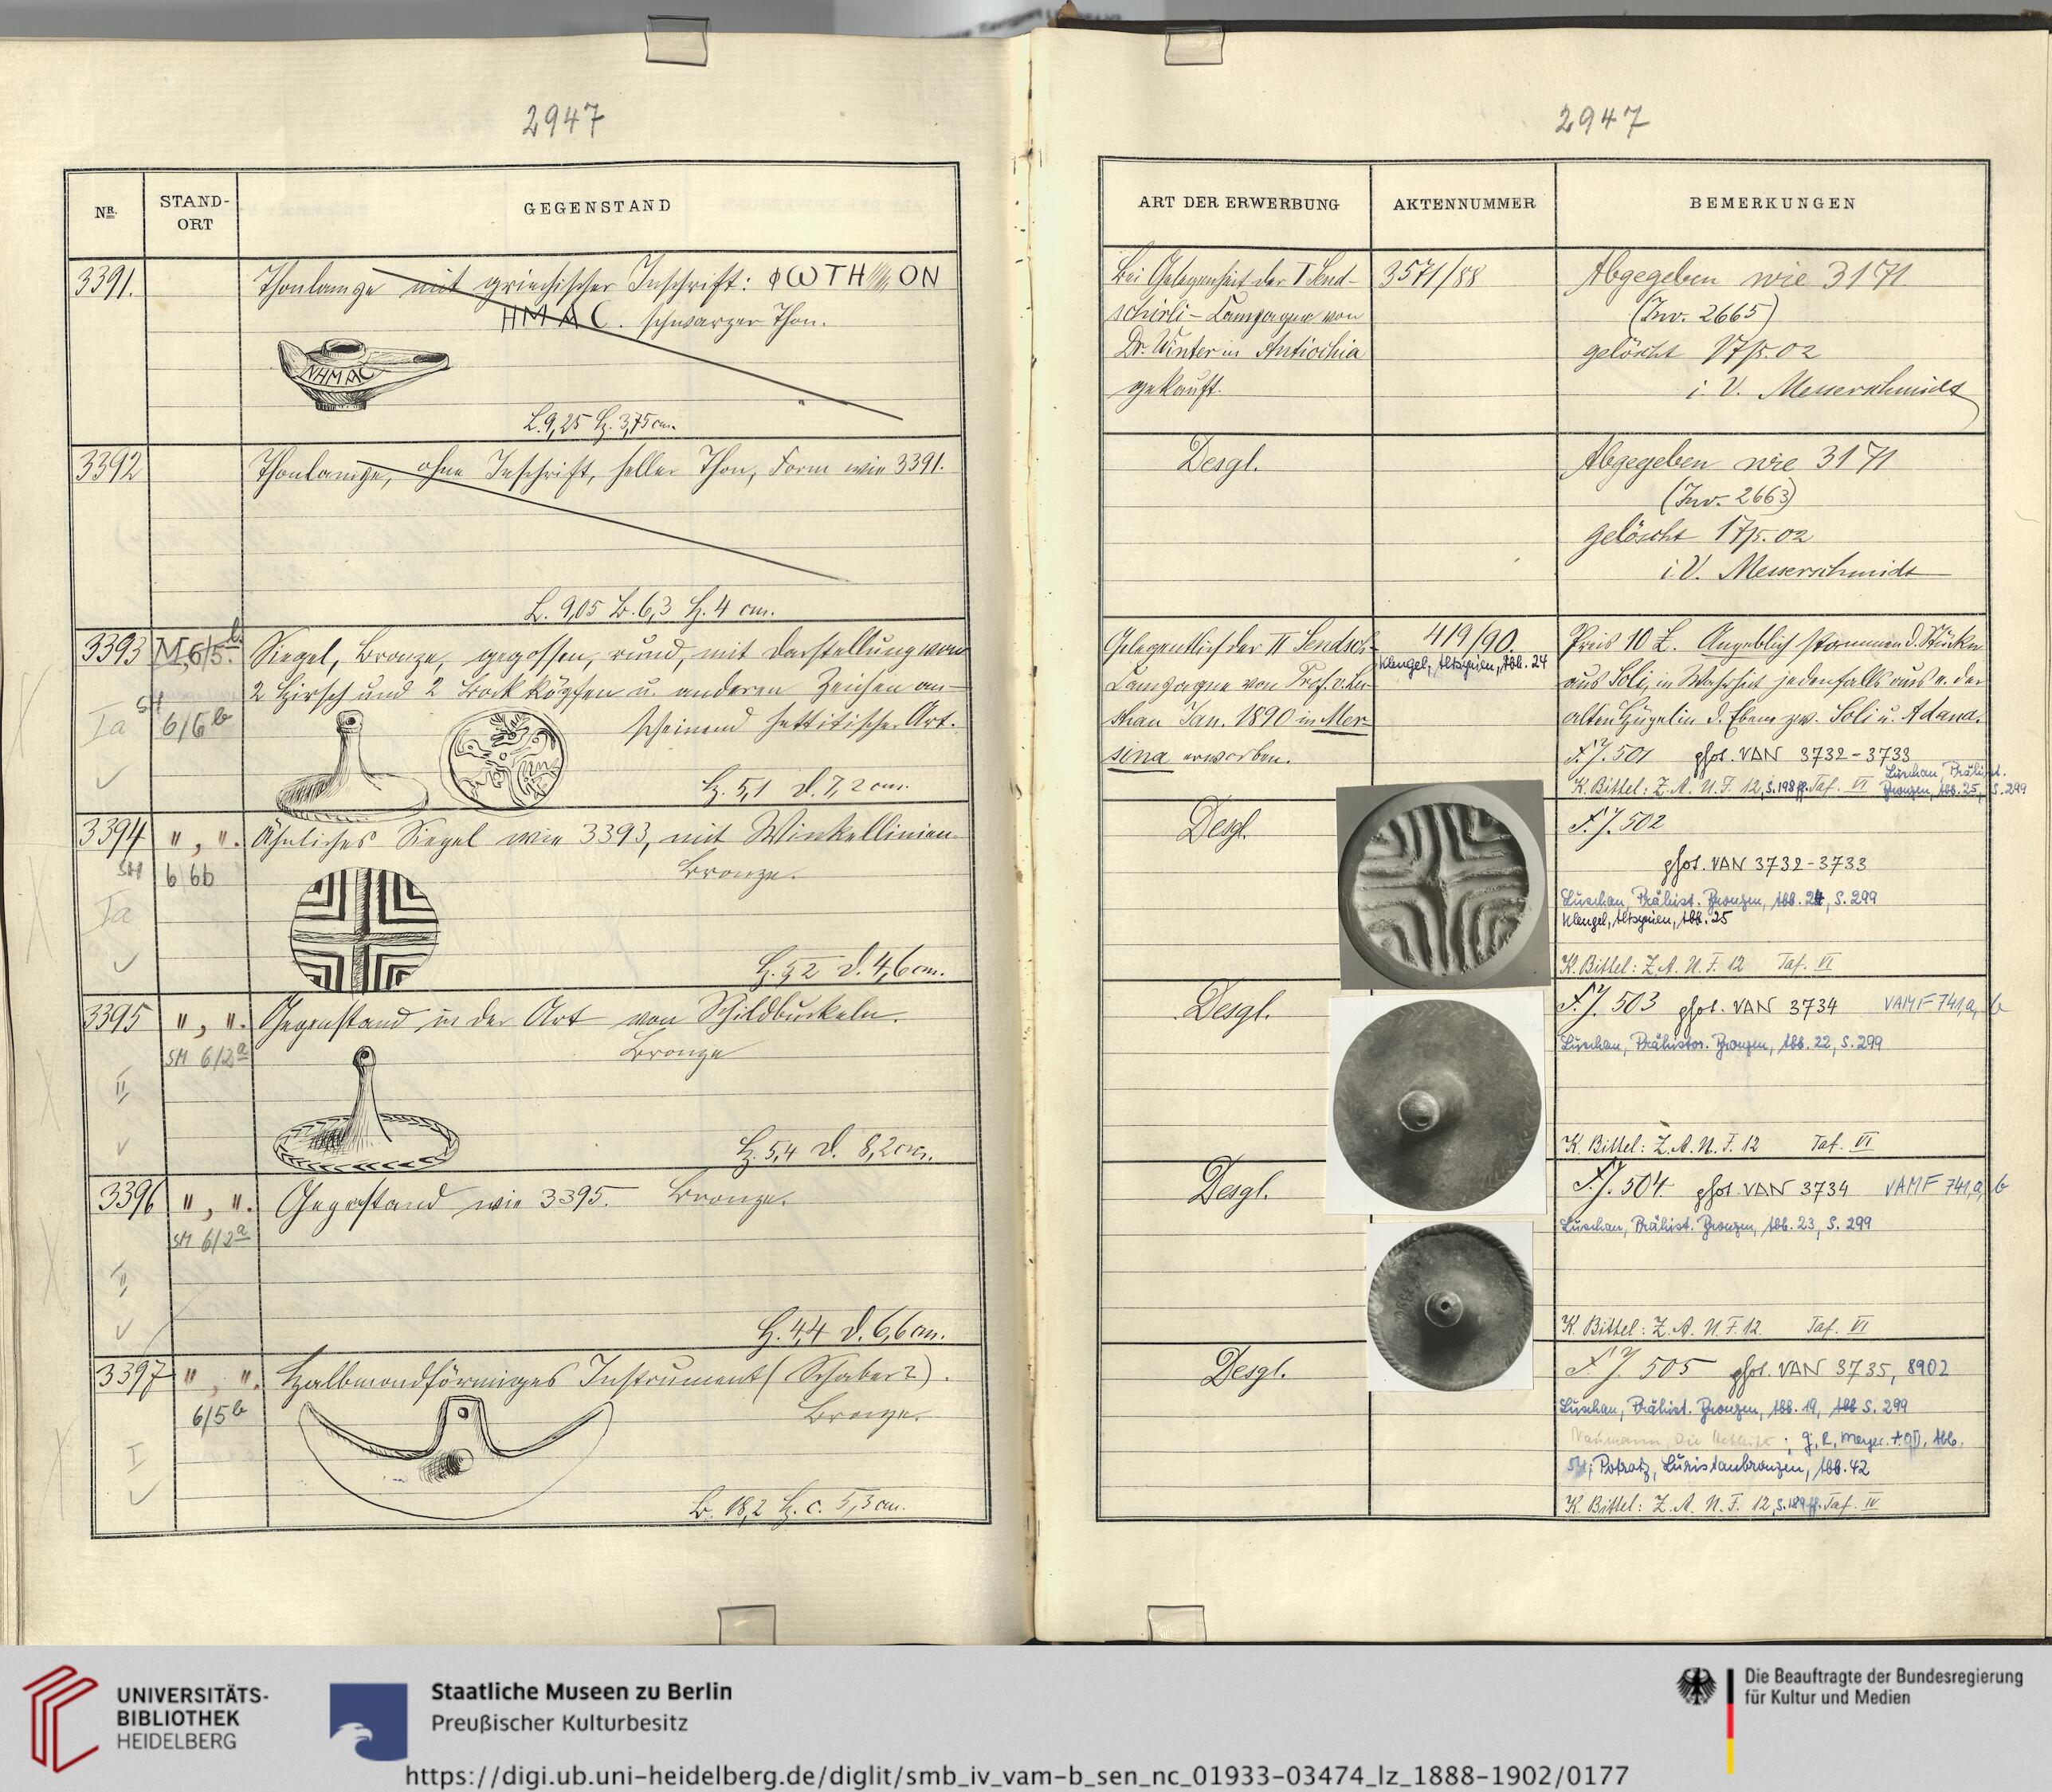 2947
NR.
STAND-
ORT
GEGENSTAND
3391.
Thonlampe mit griechischer Inschrift: ΦWTH ON
HMAC. schwarzer Thon.
NHMAC
L. 9,25 H. 3,75 cm.
3392
Thonlampe, ohne Inschrift, heller Thon, Form wie 3391.
L. 9,05 B. 6,3 H. 4 cm.
3393
M, 6/5. b.
Siegel, Bronze, gegossen, rund, mit Darstellung von
2 Hirsch und 2 Bock köpfen u. anderen Zeichen an-
scheinend hettitischer Art.
SH
Ia
6/6b
H. 5,1 d. 7,2 cm.
3394
" , ".
Ähnliches Siegel wie 3393, mit Winkellinien
Bronze.
SH
6 6b
Ia
H. 5,2 d. 4,6 cm.
3395
" , ".
Gegenstand in der Art von Schildbuckeln.
Bronze
SM 6/2a
II
H. 5,4 d. 8,2 cm.
3396
" , ".
Gegenstand wie 3395. Bronze.
SM 6/2a
II
H. 4,4 d. 6,6 cm.
3397
" , ".
Halbmondförmiges Instrument (Schaber?).
Bronze.
6/5b
I
B. 18,2 H. c. 5,3 cm.
2947
ART DER ERWERBUNG
AKTENNUMMER
BEMERKUNGEN
Bei Gelegenheit der I Send-
schirli-Campagne von
Dr. Winter in Antiochia
gekauft.
3571/88
Abgegeben wie 3171.
(Inv. 2665)
gelöscht 17/5.02
i. V. Messerschmidt
Desgl.
Abgegeben wie 3171
(Inv. 2663)
gelöscht 17/5.02
i. V. Messerschmidt
Gelegentlich der II Sendsch.
Campagne von Prof. v. Lu-
schan Jan. 1890 in Mer-
sina erworben.
419/90.
Klengel, Altsyrien, Abb. 24
Preis 10 £. Angeblich stammen d. Stücke
aus Soli, in Wahrheit jedenfalls aus e. der
alten Hügel in d. Ebene zw. Soli u. Adana.
S. J. 501 phot. VAN 3732-3733
K. Bittel: Z. A. N. F. 12, S. 198 ff. Taf. VI
Luschan, Prähist.
Bronzen, Abb. 25, S. 299
Desgl.
S. J. 502
phot. VAN 3732-3733
Luschan, Prähist. Bronzen, Abb. 24, S. 299
Klengel, Altsyrien, Abb. 25
K. Bittel: Z. A. N. F. 12 Taf. VI
Desgl.
S. J. 503 phot. VAN 3734 VAMF 741,a, b
Luschan, Prähistor. Bronzen, Abb. 22, S. 299
K. Bittel: Z. A. N. F. 12 Taf. VI
Desgl.
S. J. 504 phot. VAN 3734 VAMF 741,a, b
Luschan, Prähist. Bronzen, Abb. 23, S. 299
K. Bittel: Z. A. N. F. 12 Taf. VI
Desgl.
S. J. 505 phot. VAN 3735, 8902
Luschan, Prähist. Bronzen, Abb. 19, S. 299
G. R. Meyer, AOD, Abb.
Potratz, Luristanbronzen, Abb. 42
K. Bittel: Z. A. N. F. 12, S. 189 ff. Taf. IV
UNIVERSITÄTS-
BIBLIOTHEK
HEIDELBERG
Staatliche Museen zu Berlin
Preußischer Kulturbesitz
Die Beauftragte der Bundesregierung
für Kultur und Medien
https://digi.ub.uni-heidelberg.de/diglit/smb_iv_vam-b_sen_nc_01933-03474_lz_1888-1902/0177